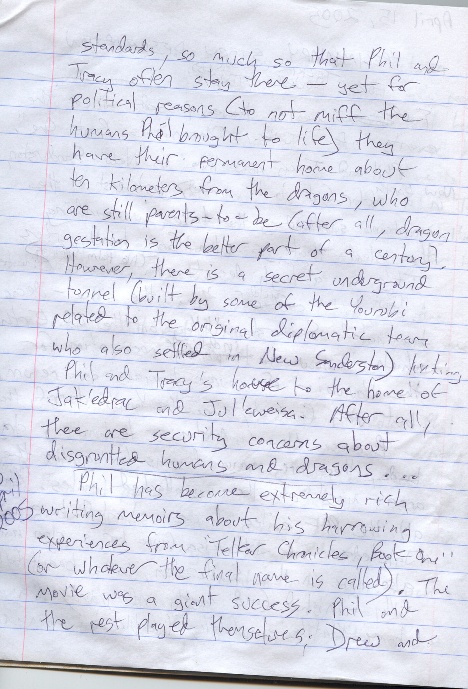 standards, so much so that Phil and
Tracy often stay there — yet for
political reasons (to not miff the
humans Phil brought to life) they
have their permanent home about
ten kilometers from the dragons, who
are still parents-to-be (after all, dragon
gestation is the better part of a century).
However, there is a secret underground
tunnel (built by some of the Yourobi
related to the original diplomatic team
who also settled in New Sanderston) linking
Phil and Tracy's house to the home of
Jak'edrac and Jul'eweisa. After all,
there are security concerns about
disgruntled humans and dragons....
Phil has become extremely rich
writing memoirs about his harrowing
experiences from "Telkar Chronicles, Book One"
(or whatever the final name is called). The
movie was a giant success. Phil and
the rest played themselves; Drew and